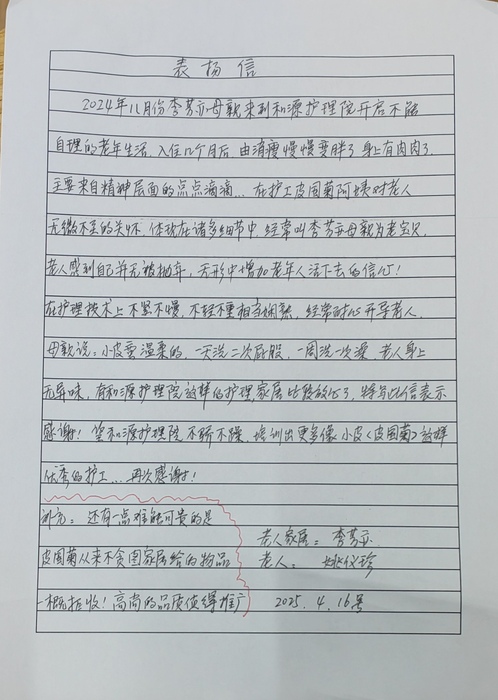 表扬信
2024年11月份李芳亦母亲来到和源护理院开启不能
自理的老年生活,入住几个月后,由消瘦慢慢变胖了身上有肉肉了.
主要来自精神层面的点点滴滴...在护工皮国菊阿姨对老人
无微不至的关怀.体现在诸多细节中,经常叫李芳亦母亲为老宝贝,
老人感到自己并无被抛弃,无形中增加老年人活下去的信心!
在护理技术上不紧不慢,不轻不重相当娴熟,经常耐心开导老人,
母亲说:小皮蛮温柔的,一天洗二次屁股,一周洗一次澡,老人身上
无异味,有和源护理院这样的护理,家属比较放心了,特写此信表示
感谢!望和源护理院不骄不躁,培训出更多像小皮(皮国菊)这样
优秀的护工...再次感谢!
补充:还有一点难能可贵的是
老人家属:李芳亦
皮国菊从来不贪图家属给的物品
老人:姚仪珍
一概拒收!高尚的品质值得推广
2025.4.16号